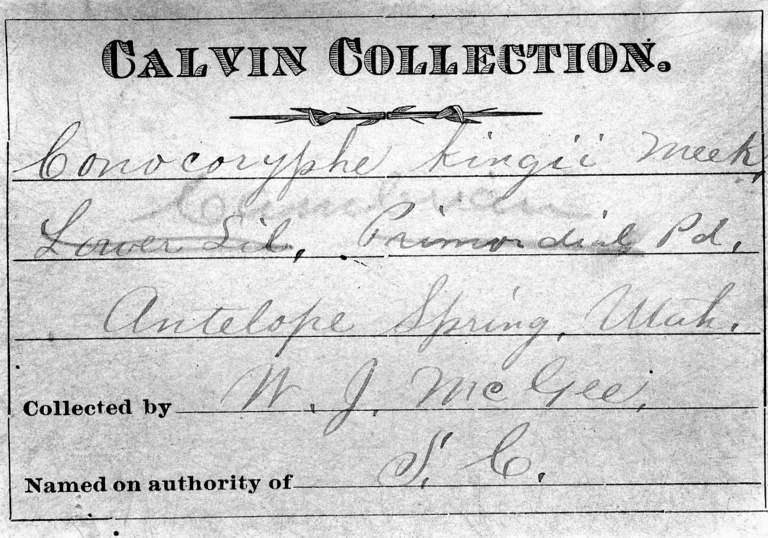 CALVIN COLLECTION.
Conocoryphe kingii Meek,
Cambrian
Lower Sil., Primordial Pd.
Antelope Spring, Utah.
Collected by W. J. McGee,
Named on authority of S. C.